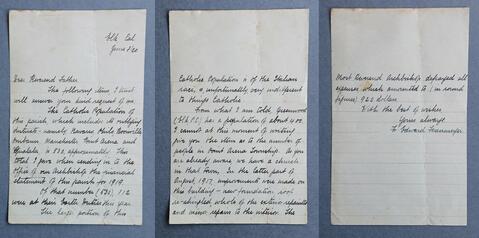 Elk Cal
June 5/20
Dear Reverend Father
The following item I trust
will answer your kind request of me.
The Catholic Population of
this parish which includes its outlying
districts - namely Navarro, Philo Boonville
Manchester Point Arena and
Gualala is 532, approximately This
total I gave when sending in to the
office of our Archbishop the financial
statement of this parish for 1919.
Of that number (532) 112
were at their Easter Duties this year
The large portion of this
Catholic Population is of the Italian
race, & unfortunately very indifferent
to things Catholic
From what I am told Greenwood
(Elk P.O.) has a population of about 400.
I cannot at this moment of writing
give you the item as to the number of
people in Point Arena Township. As you
are already aware we have a church
in that Town. In the latter part of
August, 1917 improvements were made on
this building - new foundation roof
re-shingled whole of the exterior repainted
and minor repairs to the interior. The
Most Reverend Archbishop defrayed all
expenses which amounted to (in round
figures) 920 dollars
With the best of wishes
Yours always
Edward